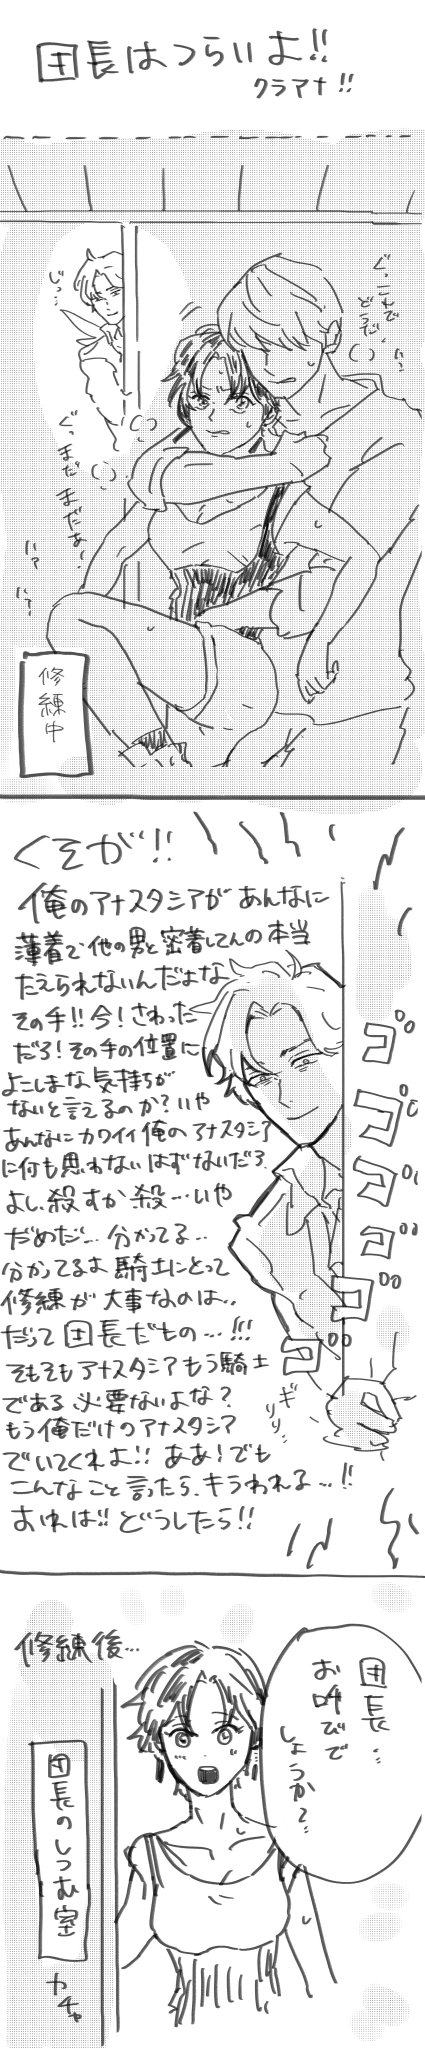 団長はつらいよ!!
クラアナ!!
ぐっこれで
どうだ!
じっ…
ぐっまだまだぁ!
ハァ
ハァ
修練中
くそが!!
俺のアナスタシアがあんなに
薄着で他の男と密着してんの本当
たえられないんだよな
その手!!今!さわった
だろ!その手の位置に
よこしまな気持ちが
ないと言えるのか?いや
あんなにカワイイ俺のアナスタシア
に何も思わないはずないだろ
よし、殺すか殺…いや
だめだ…分かってる..
分かってるよ騎士にとって
修練が大事なのは..
だって団長だもの…!!!
そもそもアナスタシアもう騎士
である必要ないよな?
もう俺だけのアナスタシア
でいてくれよ!!ああ!でも
こんなこと言ったら、キラわれる…!!
おれは!!どうしたら!!
ゴゴゴゴゴゴ
ギリリ
修練後…
団長..
お呼びで
しょうか?
団長のしつむ室
カチャ